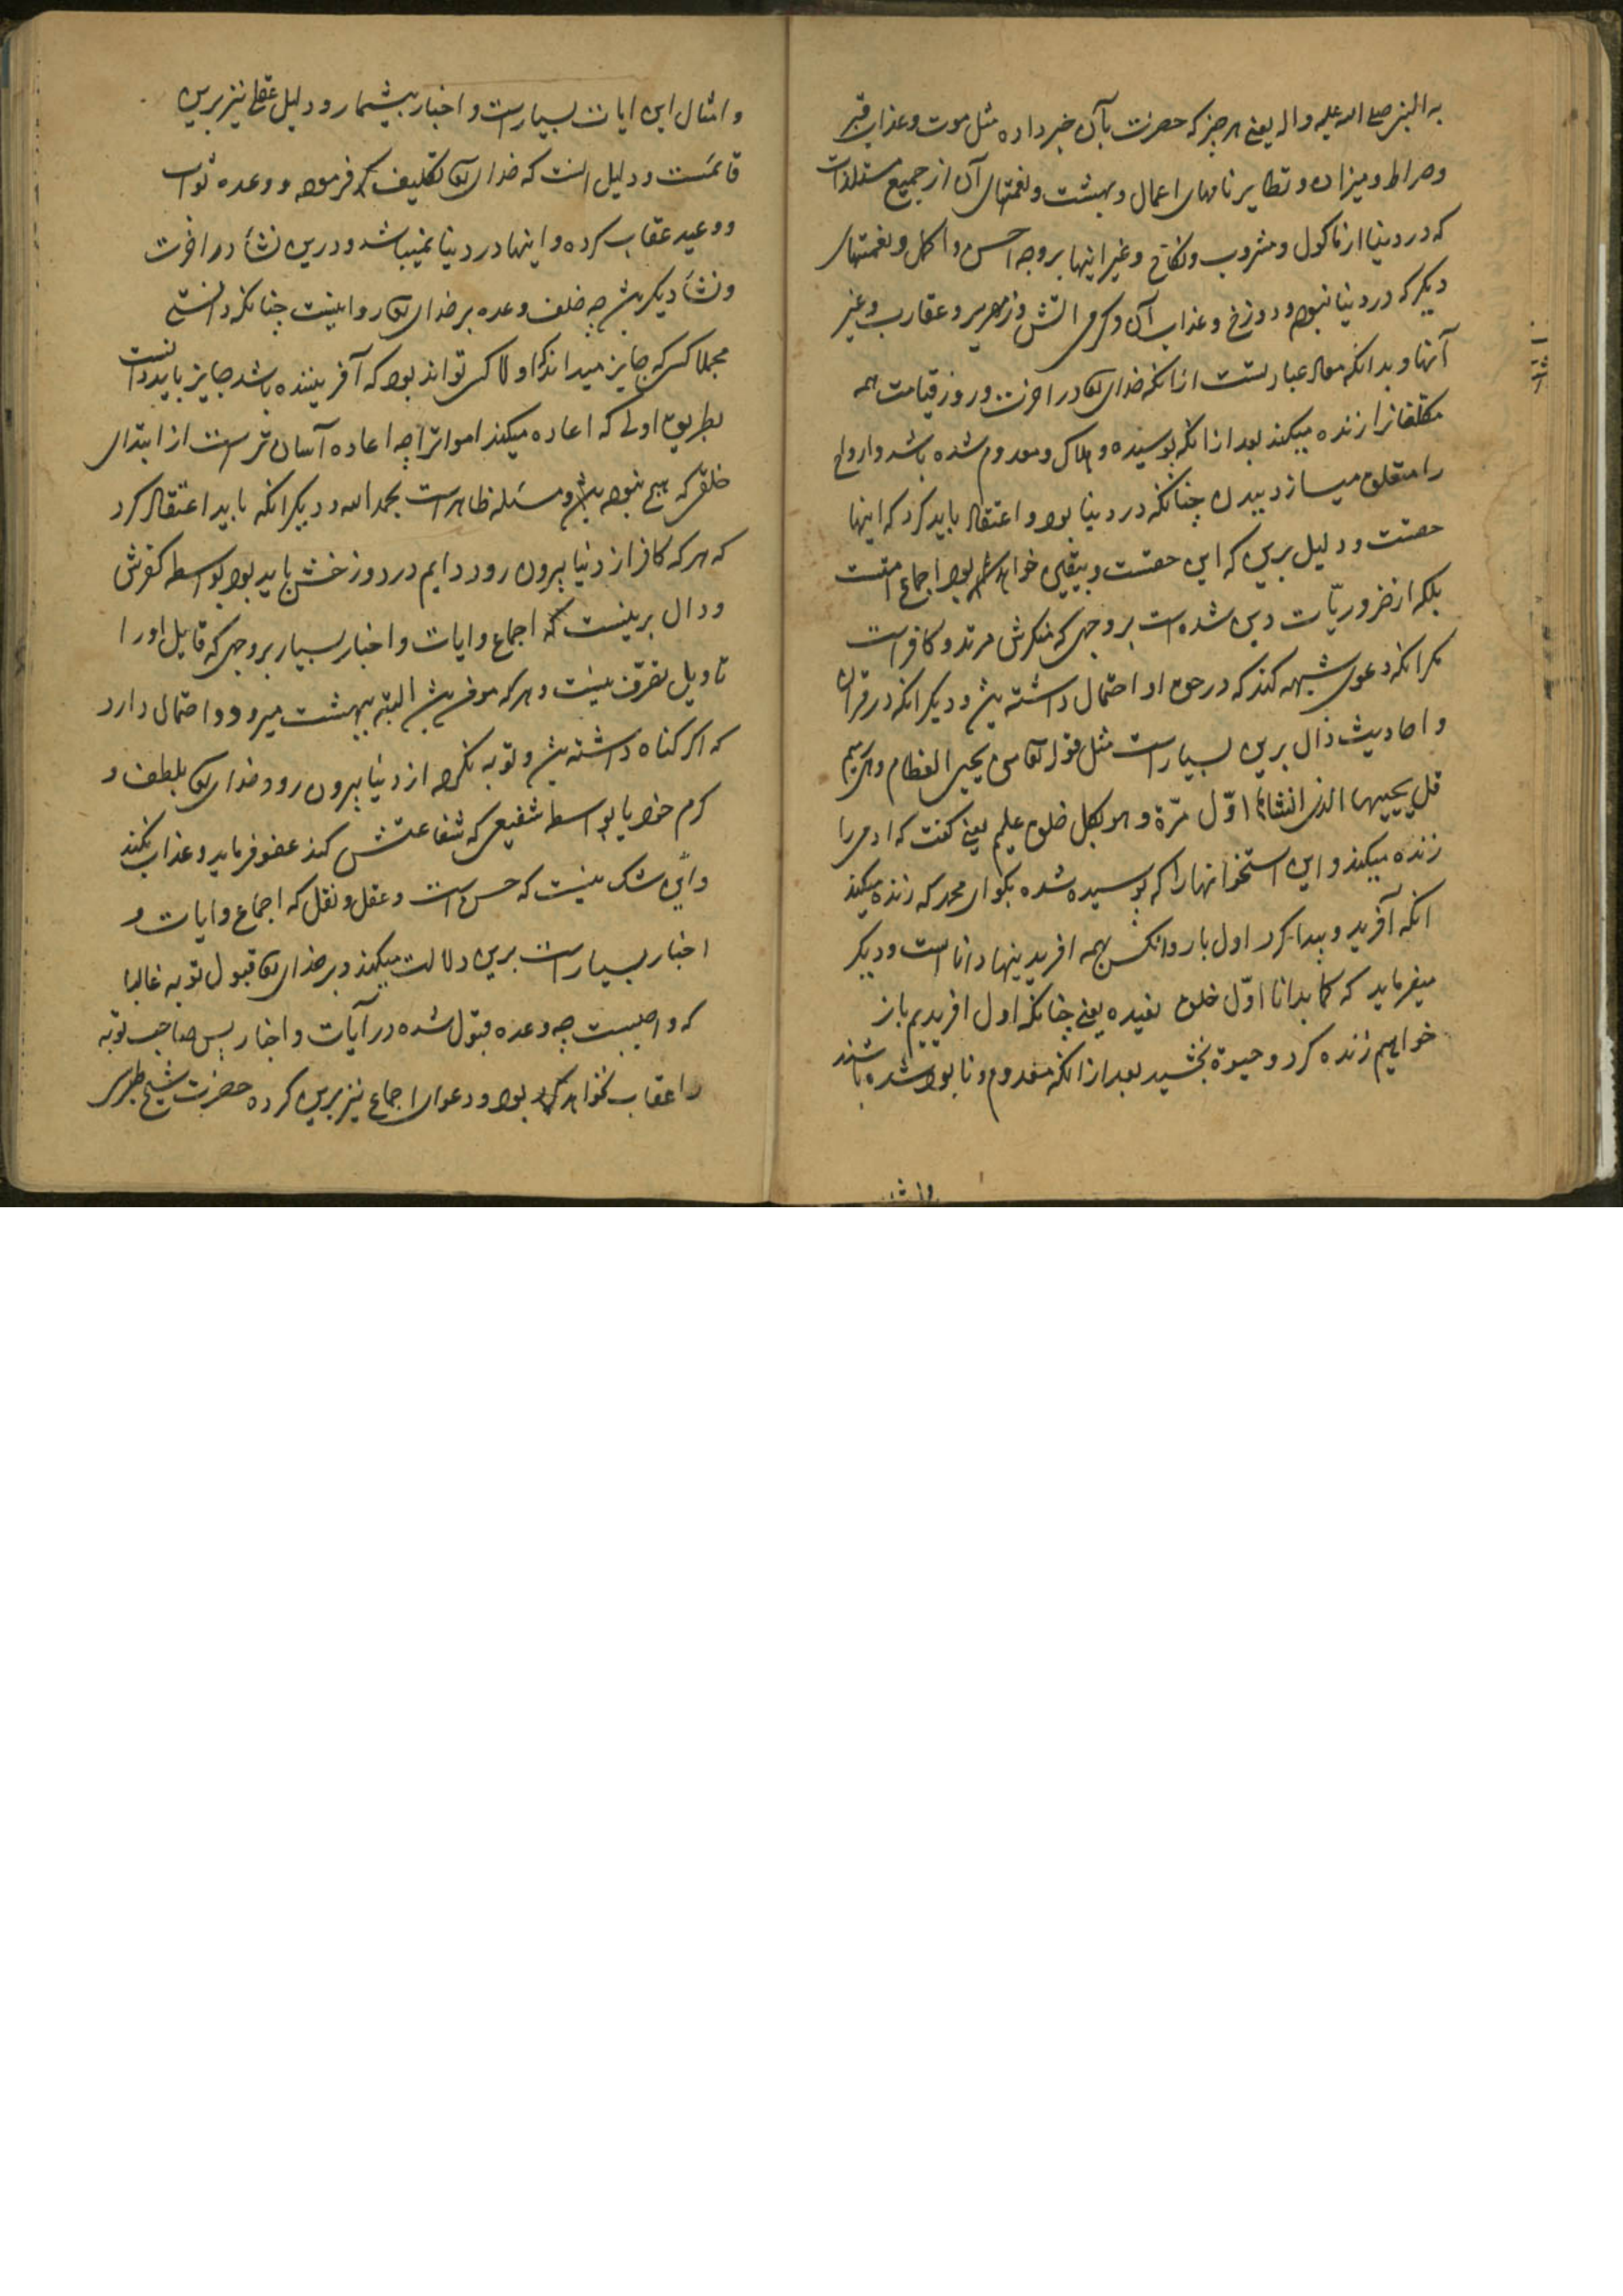 به النبی صلی الله علیه واله یعنی هر چیز که حضرت بآن خبر داده مثل موت و عذاب قبر
و صراط و میزان و تطایر نامهای اعمال و بهشت و نعمتهای آن از جمیع مستلذات
که در دنیا از ماکول و مشروب و نکاح و غیر اینها بروجه احسن و اکمل و نعمتهای
دیگر که در دنیا نبود و دوزخ و عذاب آن و کرمی اتش و زمهریر و عقارب و غیر
آنها و بدانکه معاد عبارتست از انکه خدای تعا در اخرت و روز قیامت همه
مکلفانرا زنده میکند بعد از انکه پوسیده و هلاک و معدوم شده باشد و ارواح
را متعلق میسازد ببدن چنانکه در دنیا بود و اعتقاد باید کرد که اینها
حقست و دلیل برین که این حقست و بیقین خواهد بود اجماع امتست
بلکه از ضروریّات دین شده است بر وجهی که منکرش مرتد و کافر است
مکر انکه دعوی شبهه کند که در حق او احتمال داشته بش و دیکر انکه در قران
و احادیث دال برین بسیار است مثل قوله تعا من یحیی العظام وهی رمیم
قل یحییها الذی انشاها اوّل مرّة و هو بکل خلق علیم یعنی کفت که ادمی را
زنده میکند و این استخوانها را که پوسیده شده بکو ای محمد که زنده میکند
انکه آفرید و پیدا کرد اول بار و انکس بهمه افریدینها دانا است و دیکر
میفرماید که کما بدانا اوّل خلق نعیده یعنی چنانکه اول افریدیم باز
خواهیم زنده کرد و حیوة بخشید بعد از انکه معدوم و نابود شده باشند
و امثال این ایات بسیار است و اخبار بیشمار و دلیل عقلی نیز برین
قائمست و دلیل انست که خدای تعا تکلیف فرموده و وعده ثواب
و وعید عقاب کرده و اینها در دنیا نمیباشد و درین نشأ در اخرت
و نشأ دیکر بش چه خلف وعده بر خدای تعا روا نیست چنانکه دانستی
مجملا کسی که جایز میداند که اولا کسی تواند بود که آفریننده باشد جایز باید دانست
بطریق اولی که اعاده میکند امواترا چه اعاده آسان تر است از ابتدای
خلقی که هیچ نبوده بش و مسئله ظاهر است بحمد الله و دیکر انکه باید اعتقاد کرد
که هر که کافر از دنیا بیرون رود دایم در دوزخش باید بود بواسطه کفرش
و دال برینست که اجماع و ایات و اخبار بسیار بر وجهی که قابل اورا
تاویل تصرف نیست و هر که مومن بش البته ببهشت میرود و احتمال دارد
که اکر کناه داشته بش و توبه نکرده از دنیا بیرون رود خدای تعا بلطف و
کرم خود یا بواسطه شفیعی که شفاعتش کند عفو فرماید و عذاب نکند
و این شک نیست که حسن است و عقل و نقل که اجماع و ایات و
اخبار بسیار است برین دلالت میکند و بر خدای تعا قبول توبه غالبا
که واجبست چه وعده قبول شده در آیات و اخبار پس صاحب توبه
را عقاب نخواهد بود و دعوای اجماع نیز برین کرده حضرت شیخ طبرسی